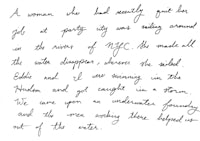 A woman who had recently quit her
job at party city was sailing around
in the rivers of NYC. She made all
the water disappear, wherever she sailed.
Eddie and I were swimming in the
Hudson and got caught in a storm.
We came upon an underwater foundry
and the men working there helped us
out of the water.